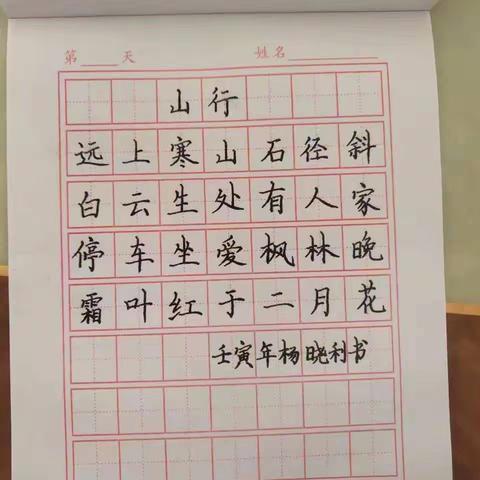 第____天 姓名____________
山行
远上寒山石径斜
白云生处有人家
停车坐爱枫林晚
霜叶红于二月花
壬寅年杨晓利书